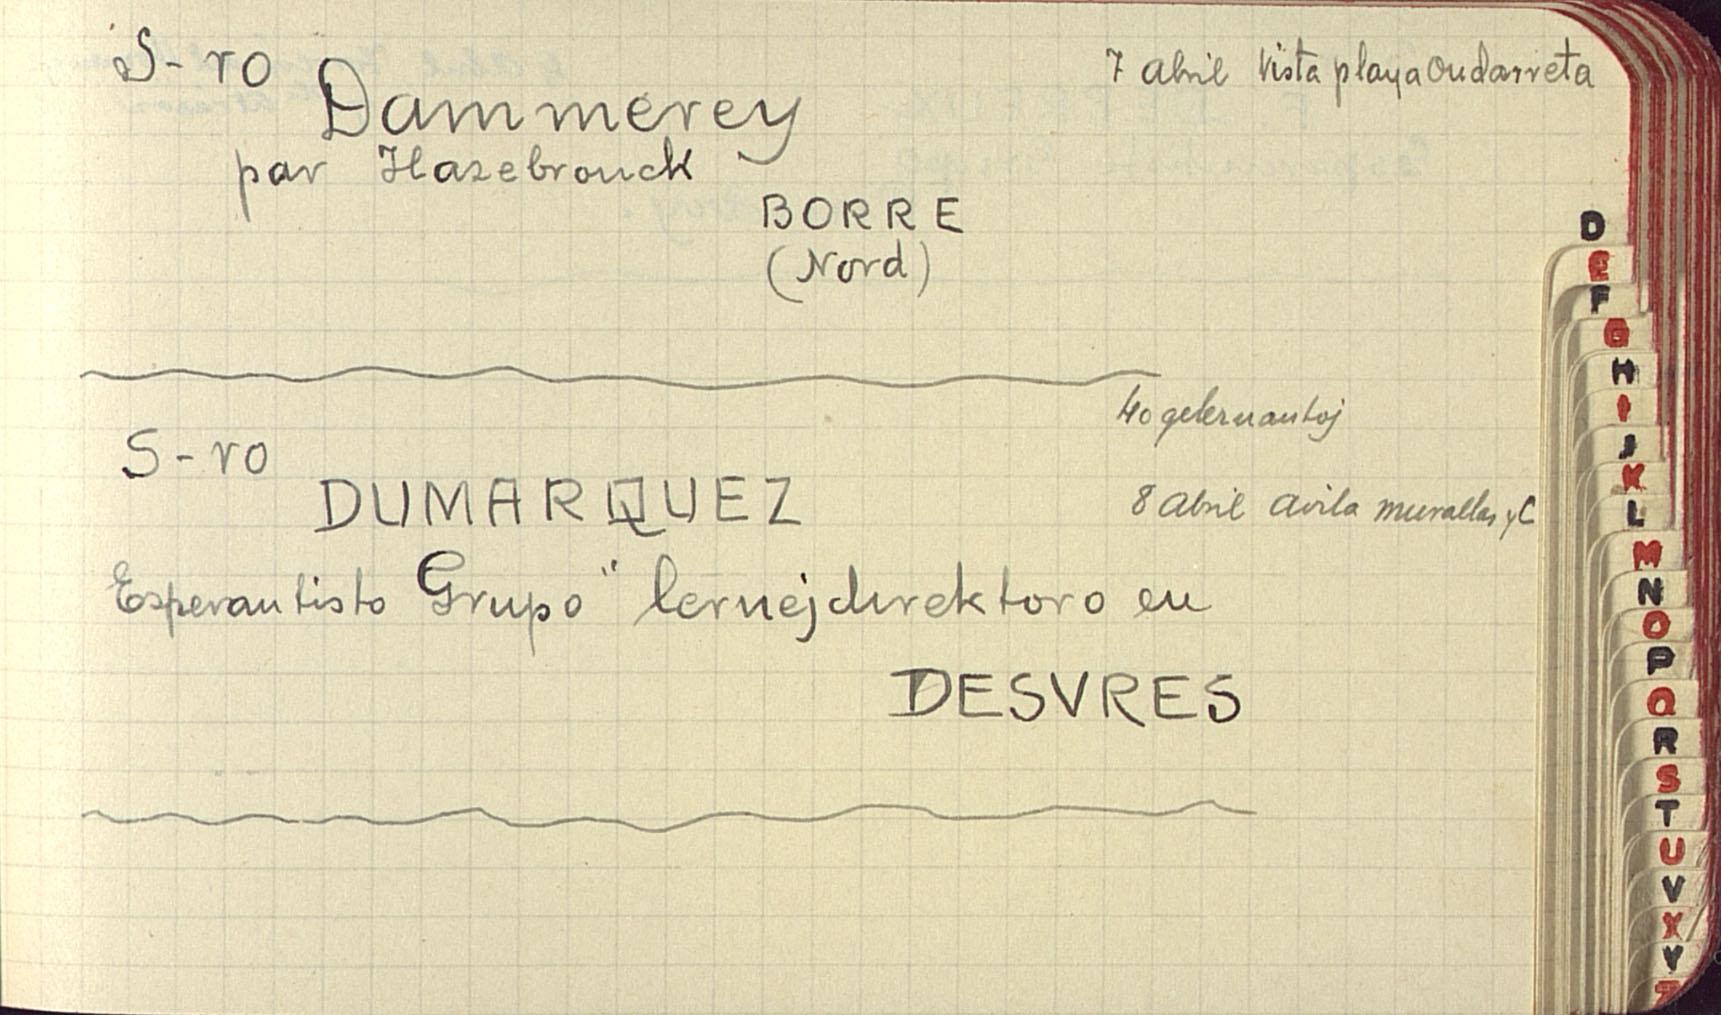 S-ro
7 abril Vista playa Ondarreta
Dammerey
par Hazebrouck
BORRE
(Nord)
40 gelernantoj
S-ro
DUMARQUEZ
8 abril Avila murallas y C
Esperantisto Grupo " lernejdirektoro en
DESVRES
D
E
F
G
H
I
J
K
L
M
N
O
P
Q
R
S
T
U
V
X
Y
Z